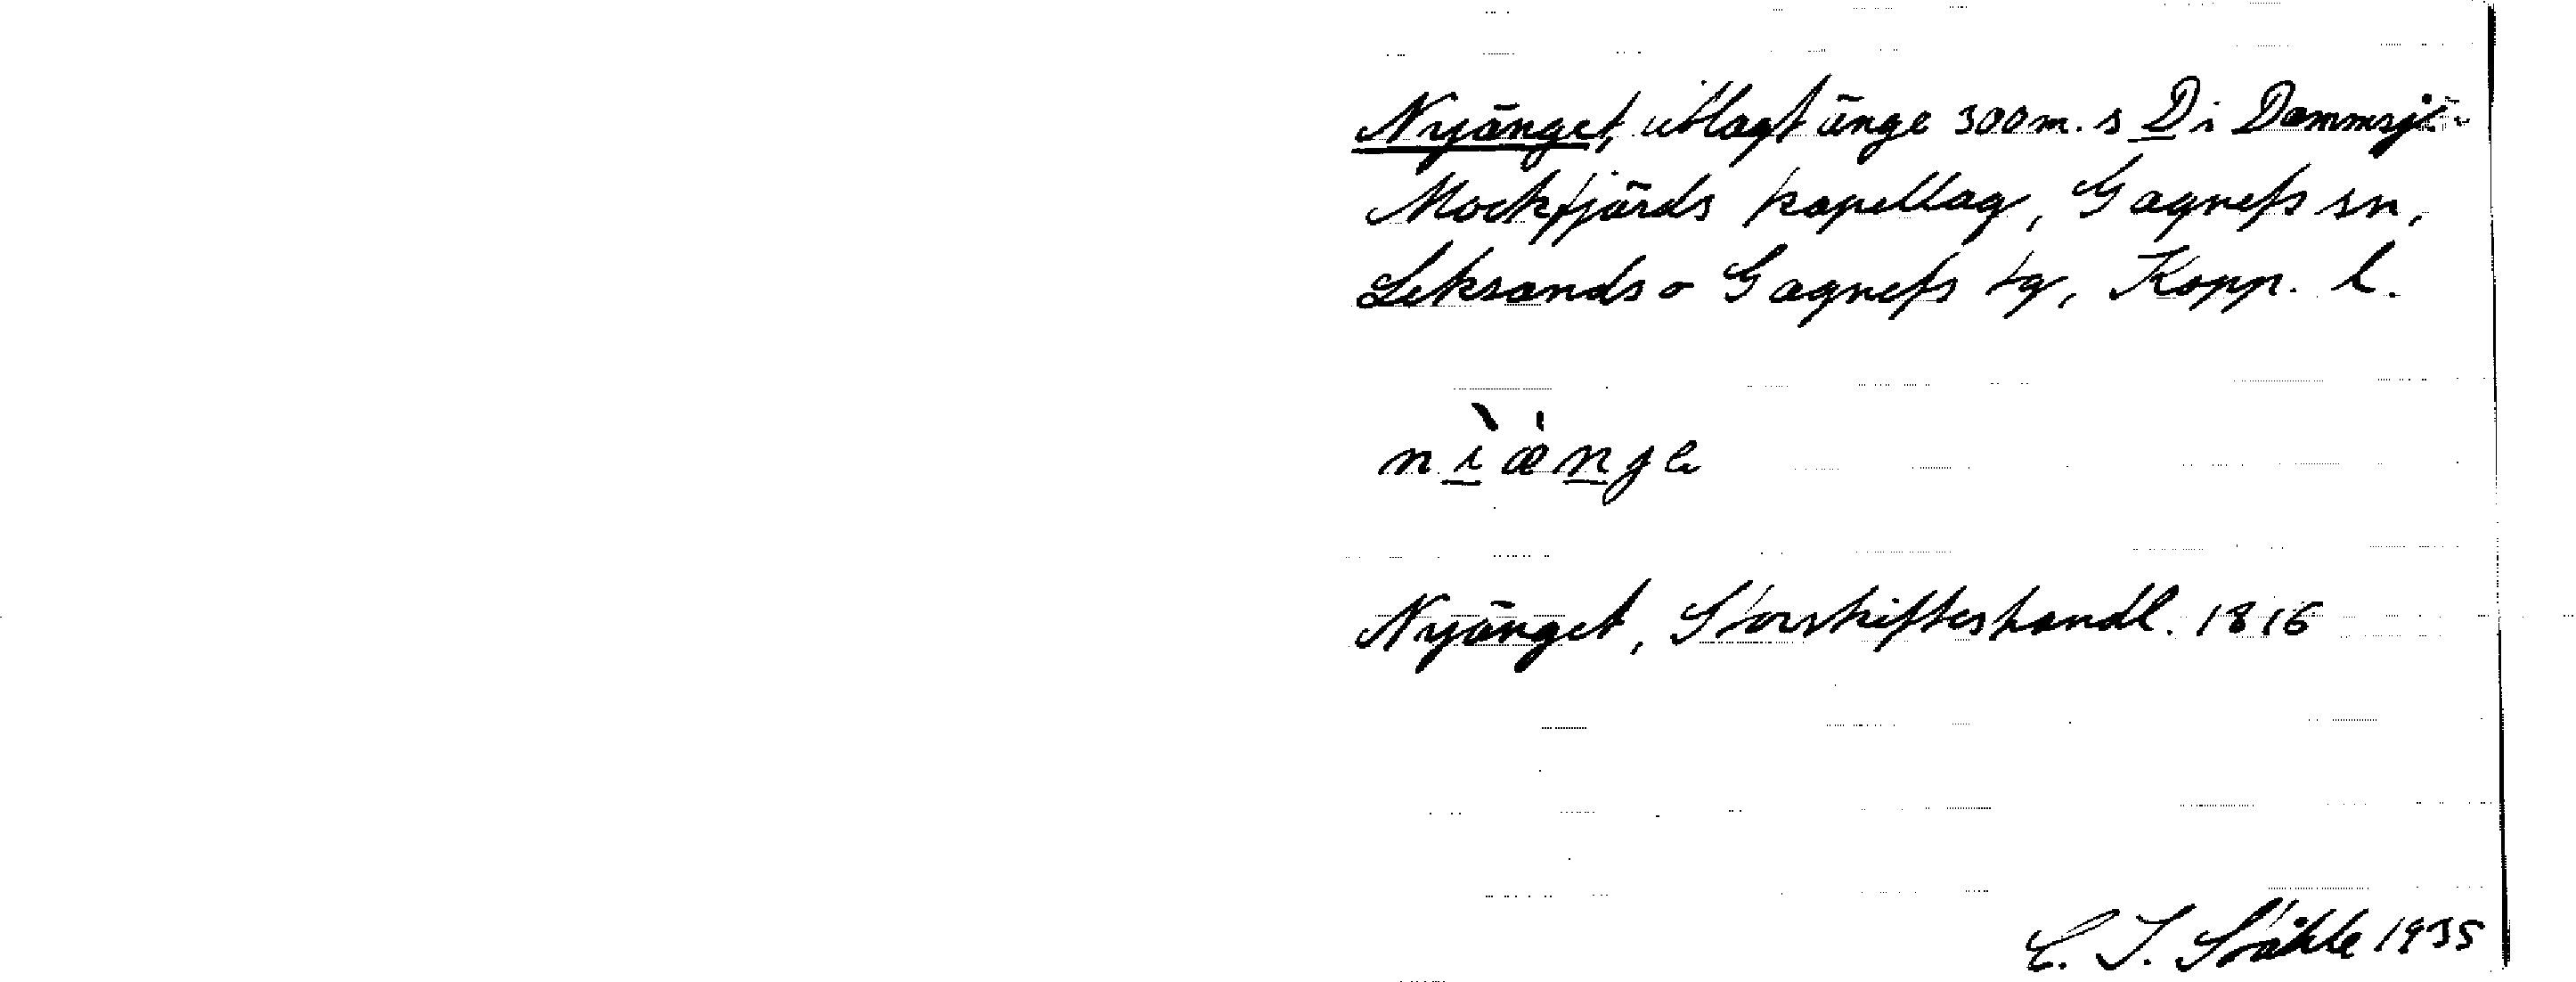 Nyänget, utlagt änge 300 m. s D i Dammsjö
Mockfjärds kapellag, Gagnefs sn,
Leksands o Gagnefs tg, Kopp. l.
nìæ̀nge
Nyänget, Storskifteshandl. 1816
C. I. Ståhle 1935